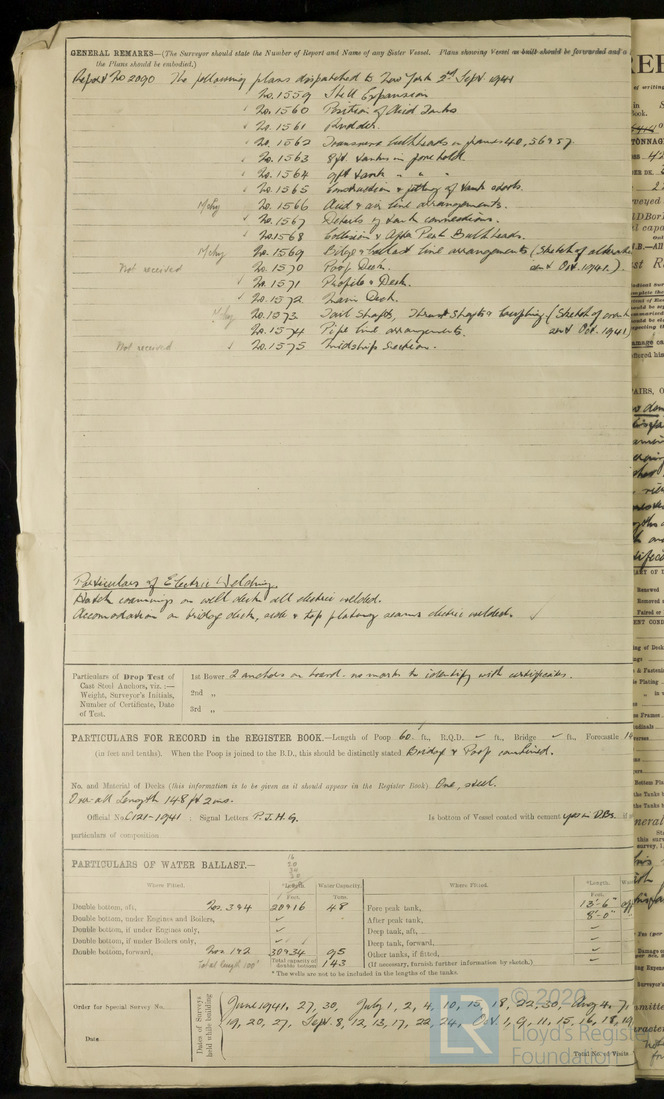 GENERAL REMARKS—(The Surveyor should state the Number of Report and Name of any Sister Vessel. Plans showing Vessel as built should be forwarded and a
the Plans should be embodied.)
Report No 2090 The following plans dispatched to New York 2nd Sept 1941
No. 1559 Shell Expansion
No. 1560 Position of Acid Tanks
No. 1561 Rudder.
No. 1562 Transverse bulkheads in frames 40, 56 & 57
No. 1563 8ft. tanks in fore hold.
No. 1564 9ft tank " "
No. 1565 Construction & fitting of tank stools.
Mchy No. 1566 Acid & air line arrangements.
No. 1567 Details of tank connections.
No. 1568 Collision & After Peak Bulkheads.
Mchy No. 1569 Bilge & ballast line arrangements (Sketch of
Not received No. 1570 Poop Deck. sent Oct. 1941.)
No. 1571 Profile & Deck.
No. 1572 Main Deck.
Mchy No. 1573 Tail Shafts, Thrust Shafts & Coupling (Sketch of
No. 1574 Pipe line arrangements. sent Oct. 1941)
Not received No. 1575 Midship Section.
Particulars of Electric Welding.
Hatch coamings on well deck all electric welded.
Accomodation on bridge deck, side & top plating seams electric welded.
Particulars of Drop Test of
Cast Steel Anchors, viz. :—
Weight, Surveyor's Initials,
Number of Certificate, Date
of Test.
1st Bower 2 anchors on board. no marks to identify with certificates.
2nd "
3rd "
PARTICULARS FOR RECORD in the REGISTER BOOK.—Length of Poop 60 ft., R.Q.D. ft., Bridge ft., Forecastle
(in feet and tenths). When the Poop is joined to the B.D., this should be distinctly stated Bridge & Poop combined.
No. and Material of Decks (this information is to be given as it should appear in the Register Book) One, steel.
Over-all length 148 ft 2 ins.
Official No. C121-1941 ; Signal Letters P.J.H.G. Is bottom of Vessel coated with cement yes in DBs.
particulars of composition
PARTICULARS OF WATER BALLAST.—
Where Fitted. *Length. Water Capacity. Where Fitted. *Length.
Feet. Tons. Feet.
Double bottom, aft, 48 Fore peak tank, 13'-6"
Double bottom, under Engines and Boilers, After peak tank, 8'-0"
Double bottom, if under Engines only, Deep tank, aft,
Double bottom, if under Boilers only, Deep tank, forward,
Double bottom, forward, 95 Other tanks, if fitted,
Total length 100' Total capacity of double bottom 143 (If necessary, furnish further information by sketch.)
* The wells are not to be included in the lengths of the tanks.
Order for Special Survey No.
Date
Dates of Surveys held while building
June 1941, 27, 30, July 1, 2, 4, 10, 15, 18, 22, 30, Aug 4, 7,
19, 20, 27, Sept. 8, 12, 13, 17, 22, 24, Oct. 1, 9, 11, 15, 16, 18, 19
Total No. of Visits
© 2020
Lloyd's Register
Foundation